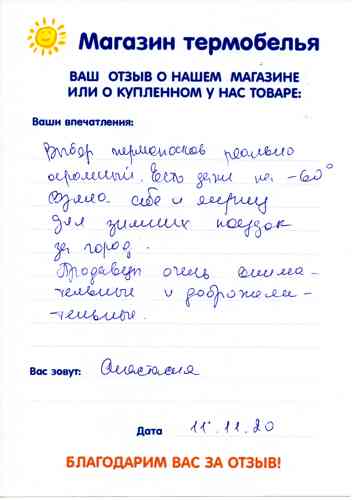 Магазин термобелья
ВАШ ОТЗЫВ О НАШЕМ МАГАЗИНЕ
ИЛИ О КУПЛЕННОМ У НАС ТОВАРЕ:
Ваши впечатления:
Выбор термоносков реально
огромный. Есть даже на -60°
Взяла себе и мужу
для зимних поездок
за город.
Продавцы очень внима-
тельные и доброжела-
-тельные.
Вас зовут: Анастасия
Дата 11.11.20
БЛАГОДАРИМ ВАС ЗА ОТЗЫВ!